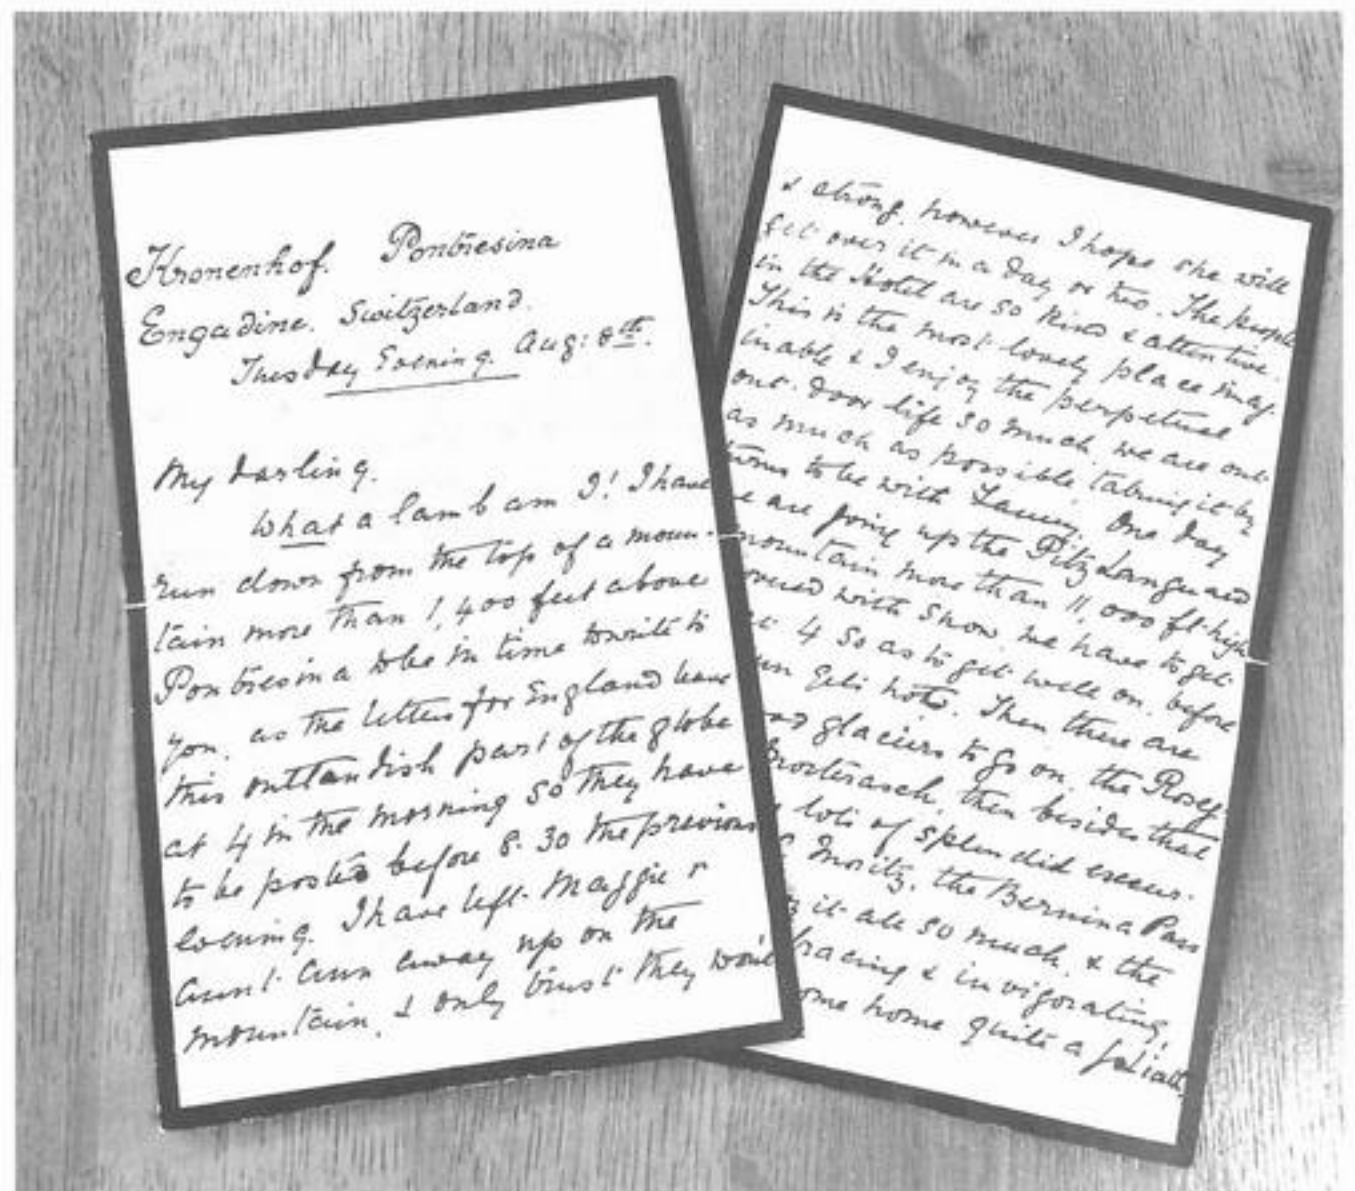 Kronenhof. Pontresina
Engadine. Switzerland.
Tuesday Evening. Aug: 8th.
My darling.
What a lamb am I! I have
run down from the top of a moun-
tain more than 1,400 feet above
Pontresina to be in time to write to
you, as the letters for England leave
this outlandish part of the globe
at 4 in the morning so they have
to be posted before 8.30 the previous
evening. I have left Maggie &
Aunt Ann away up on the
mountain, & only trust they won't
& strong. however I hope she will
get over it in a day or two. The people
in the Hotel are so kind & attentive.
This is the most lovely place imag-
inable & I enjoy the perpetual
out-door life so much, we are out
as much as possible, taking it by
turns to be with Fanny. One day
we are going up the Pitz Languard
mountain more than 11,000 ft. high
covered with snow. we have to get
4 so as to get well on, before
gets hot. Then there are
glaciers to go on, the Roseg
then besides that
lots of splendid excur-
Moritz, the Bernina Pass
it all so much, & the
bracing & invigorating,
home quite a Goliath